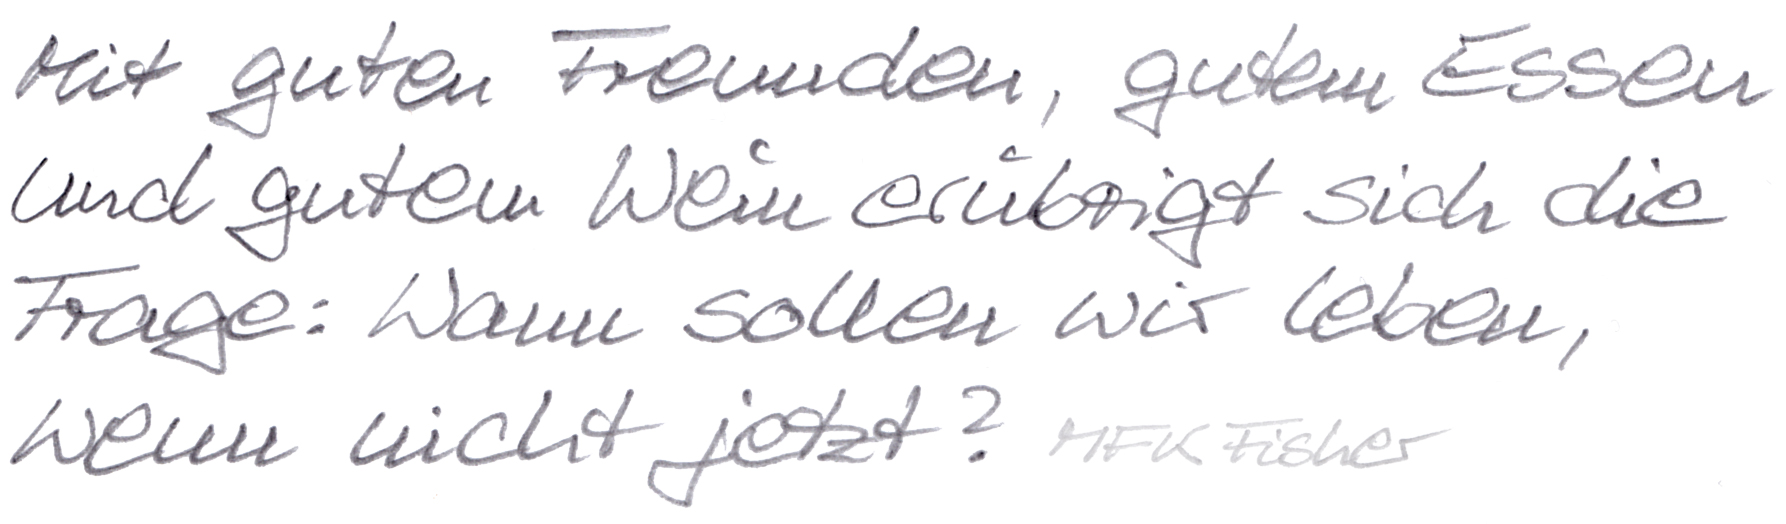 Mit guten Freunden, gutem Essen
und gutem Wein erübrigt sich die
Frage: Wann sollen wir leben,
wenn nicht jetzt? MFK Fisher